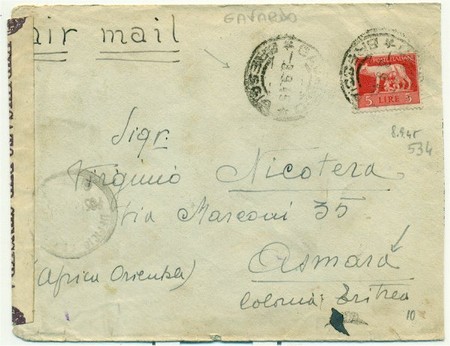 GAVARDO
air mail
8.9.45
5 LIRE 5
8.9.45
534
Sigr.
Virginio Nicotera
Via Marconi 35
(Africa Orientale) Asmara
Colonia Eritrea
10